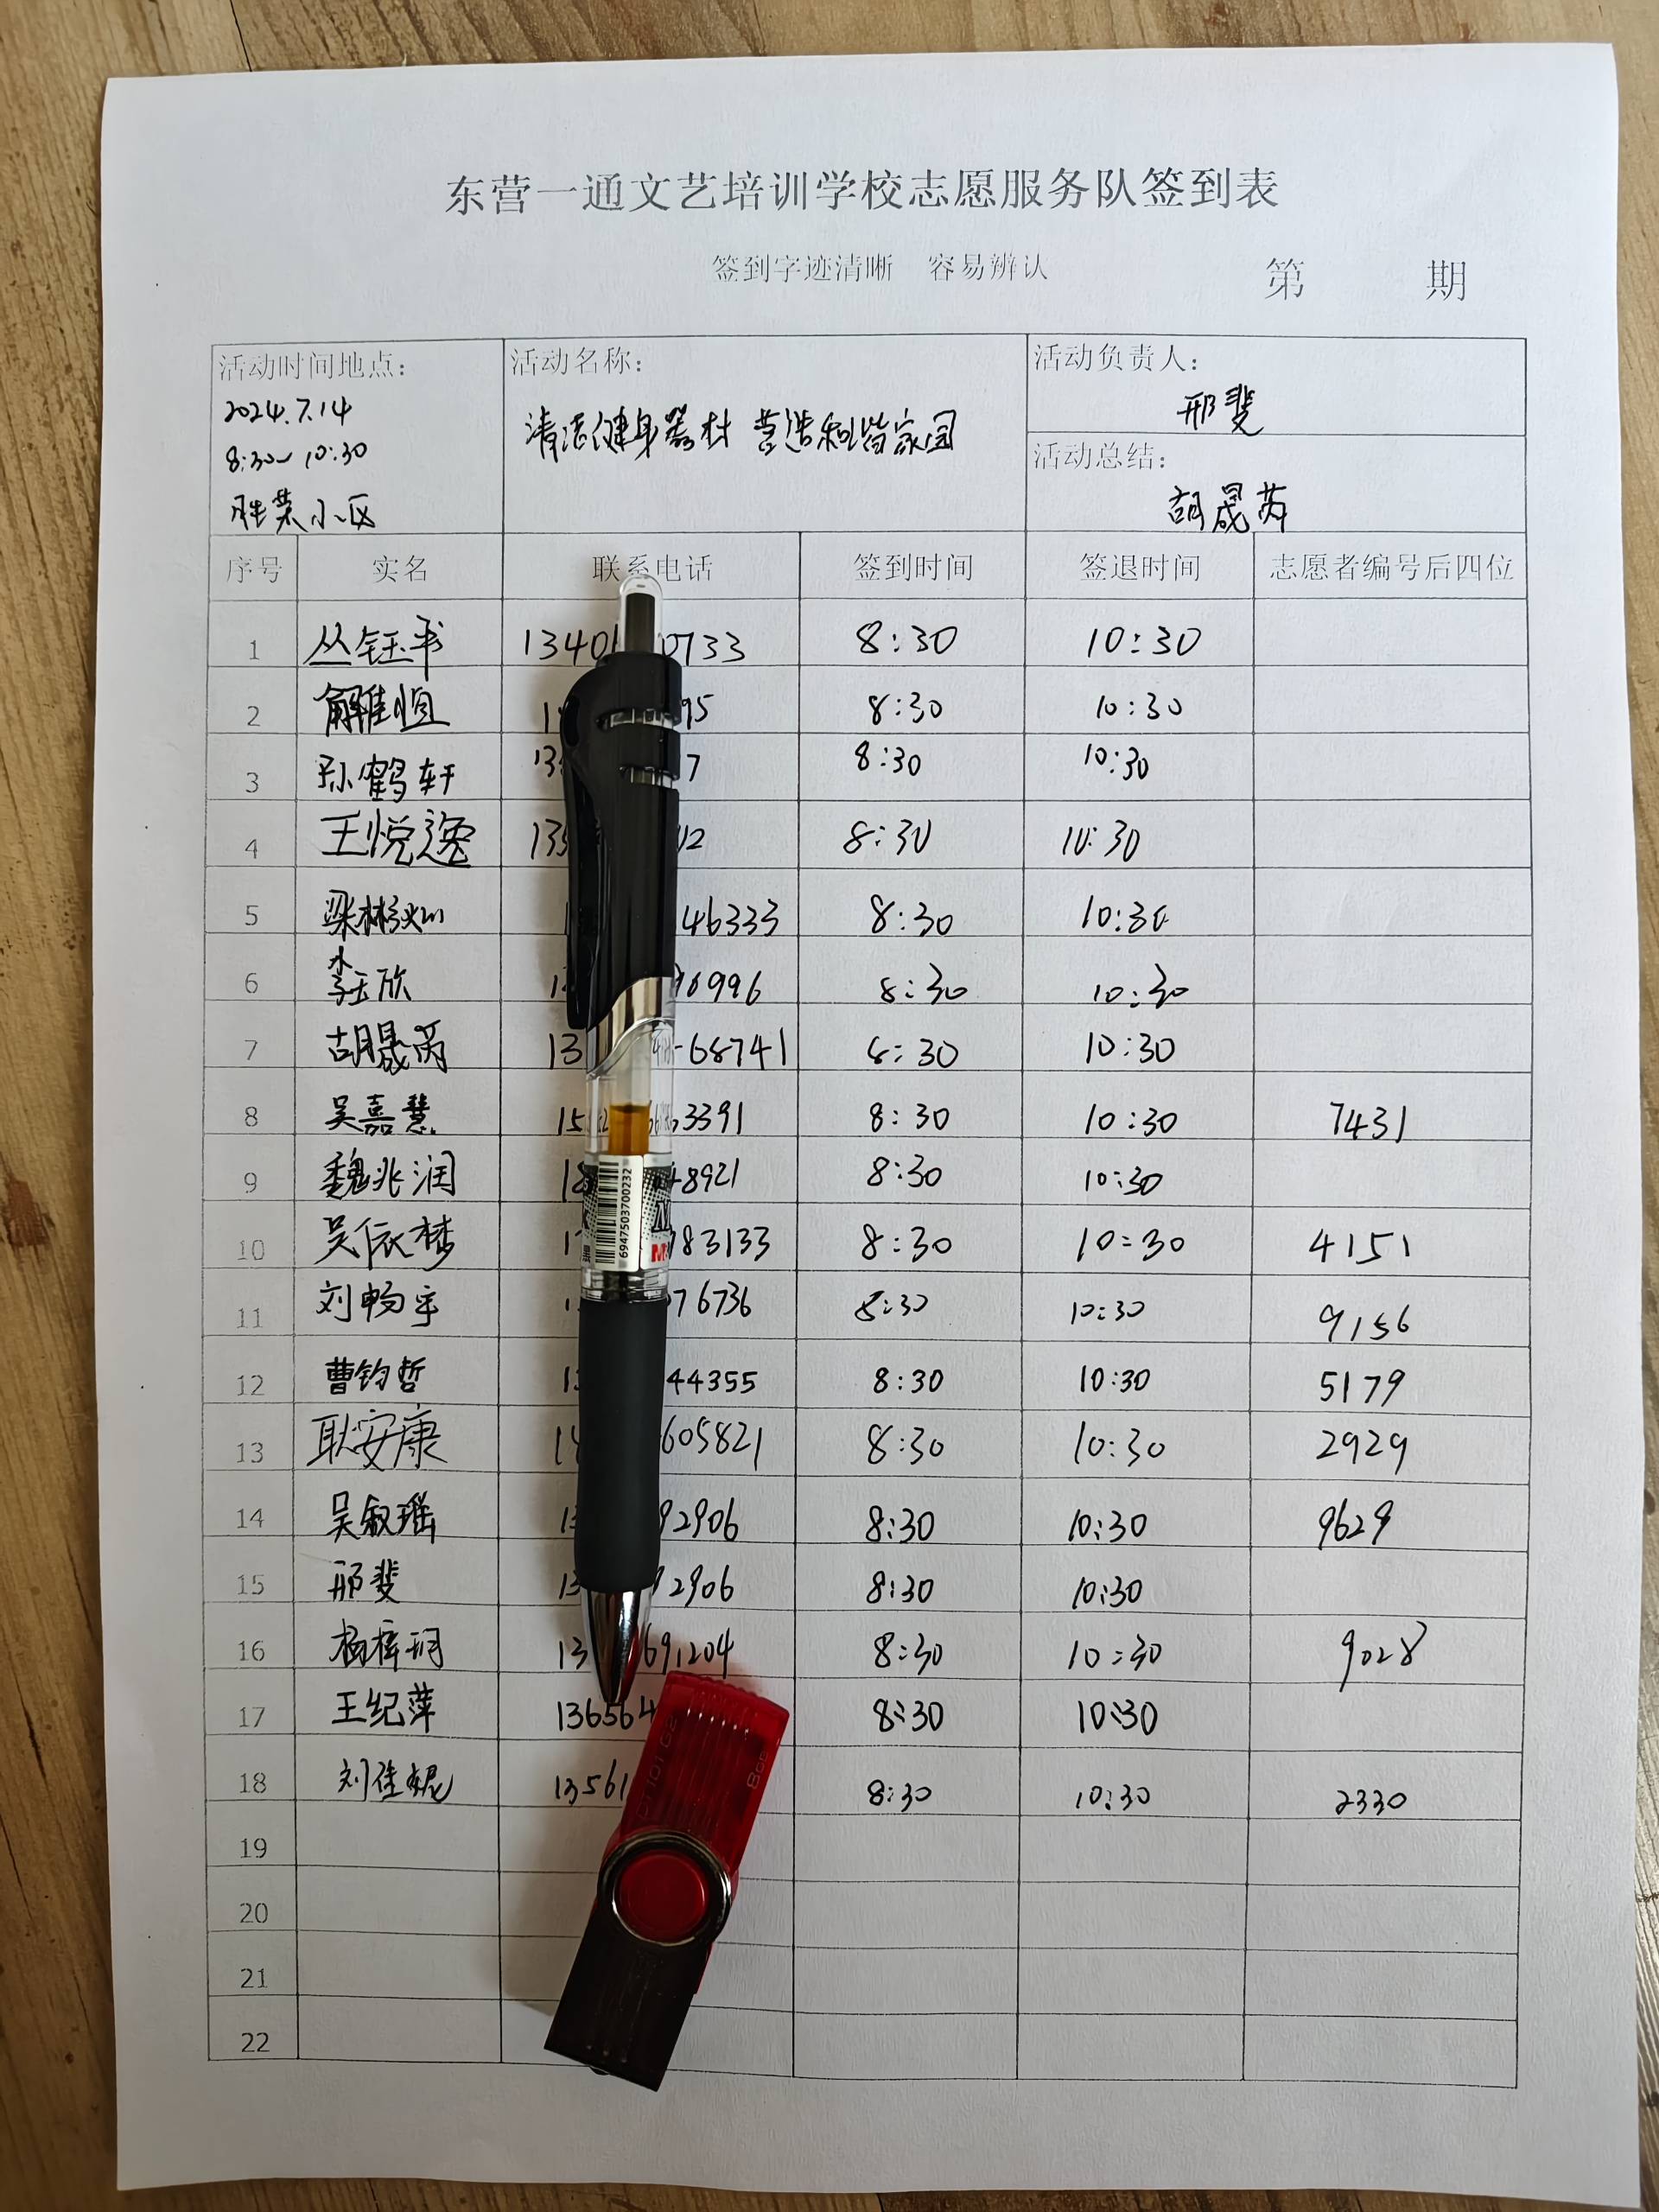 东营一通文艺培训学校志愿服务队签到表
签到字迹清晰 容易辨认 第 期
活动时间地点：
2024.7.14
8:30~10:30
胜荣小区
活动名称：
清洁健身器材 营造和谐家园
活动负责人：
邢斐
活动总结：
胡晟芮
序号 实名 联系电话 签到时间 签退时间 志愿者编号后四位
1 丛钰书 1340 0733 8:30 10:30
2 解惟恒 1 95 8:30 10:30
3 孙鹤轩 13 7 8:30 10:30
4 王悦逸 135 12 8:30 10:30
5 梁彬 46333 8:30 10:30
6 李玉欣 1 96996 8:30 10:30
7 胡晟芮 13 68741 8:30 10:30
8 吴嘉慧 15 3391 8:30 10:30 7431
9 魏兆润 18 48921 8:30 10:30
10 吴依梦 1 783133 8:30 10:30 4151
11 刘畅宇 1 76736 8:30 10:30 9156
12 曹钧哲 13 44355 8:30 10:30 5179
13 耿安康 1 605821 8:30 10:30 2929
14 吴叙瑶 13 92906 8:30 10:30 9629
15 邢斐 13 92906 8:30 10:30
16 杨梓玥 13 691204 8:30 10:30 9028
17 王纪萍 136564 8:30 10:30
18 刘佳妮 13561 8:30 10:30 2330
19
20
21
22
6947503700232